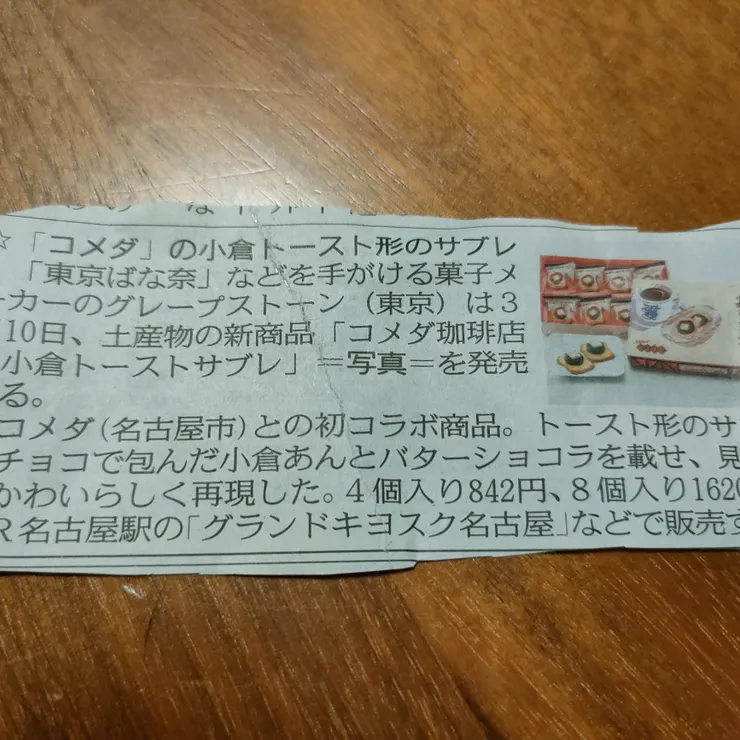 ☆「コメダ」の小倉トースト形のサブレ
「東京ばな奈」などを手がける菓子メ
ーカーのグレープストーン（東京）は３
10日、土産物の新商品「コメダ珈琲店
小倉トーストサブレ」＝写真＝を発売
る。
コメダ(名古屋市)との初コラボ商品。トースト形のサ
チョコで包んだ小倉あんとバターショコラを載せ、見
かわいらしく再現した。４個入り842円、８個入り1620
Ｒ名古屋駅の「グランドキヨスク名古屋」などで販売す